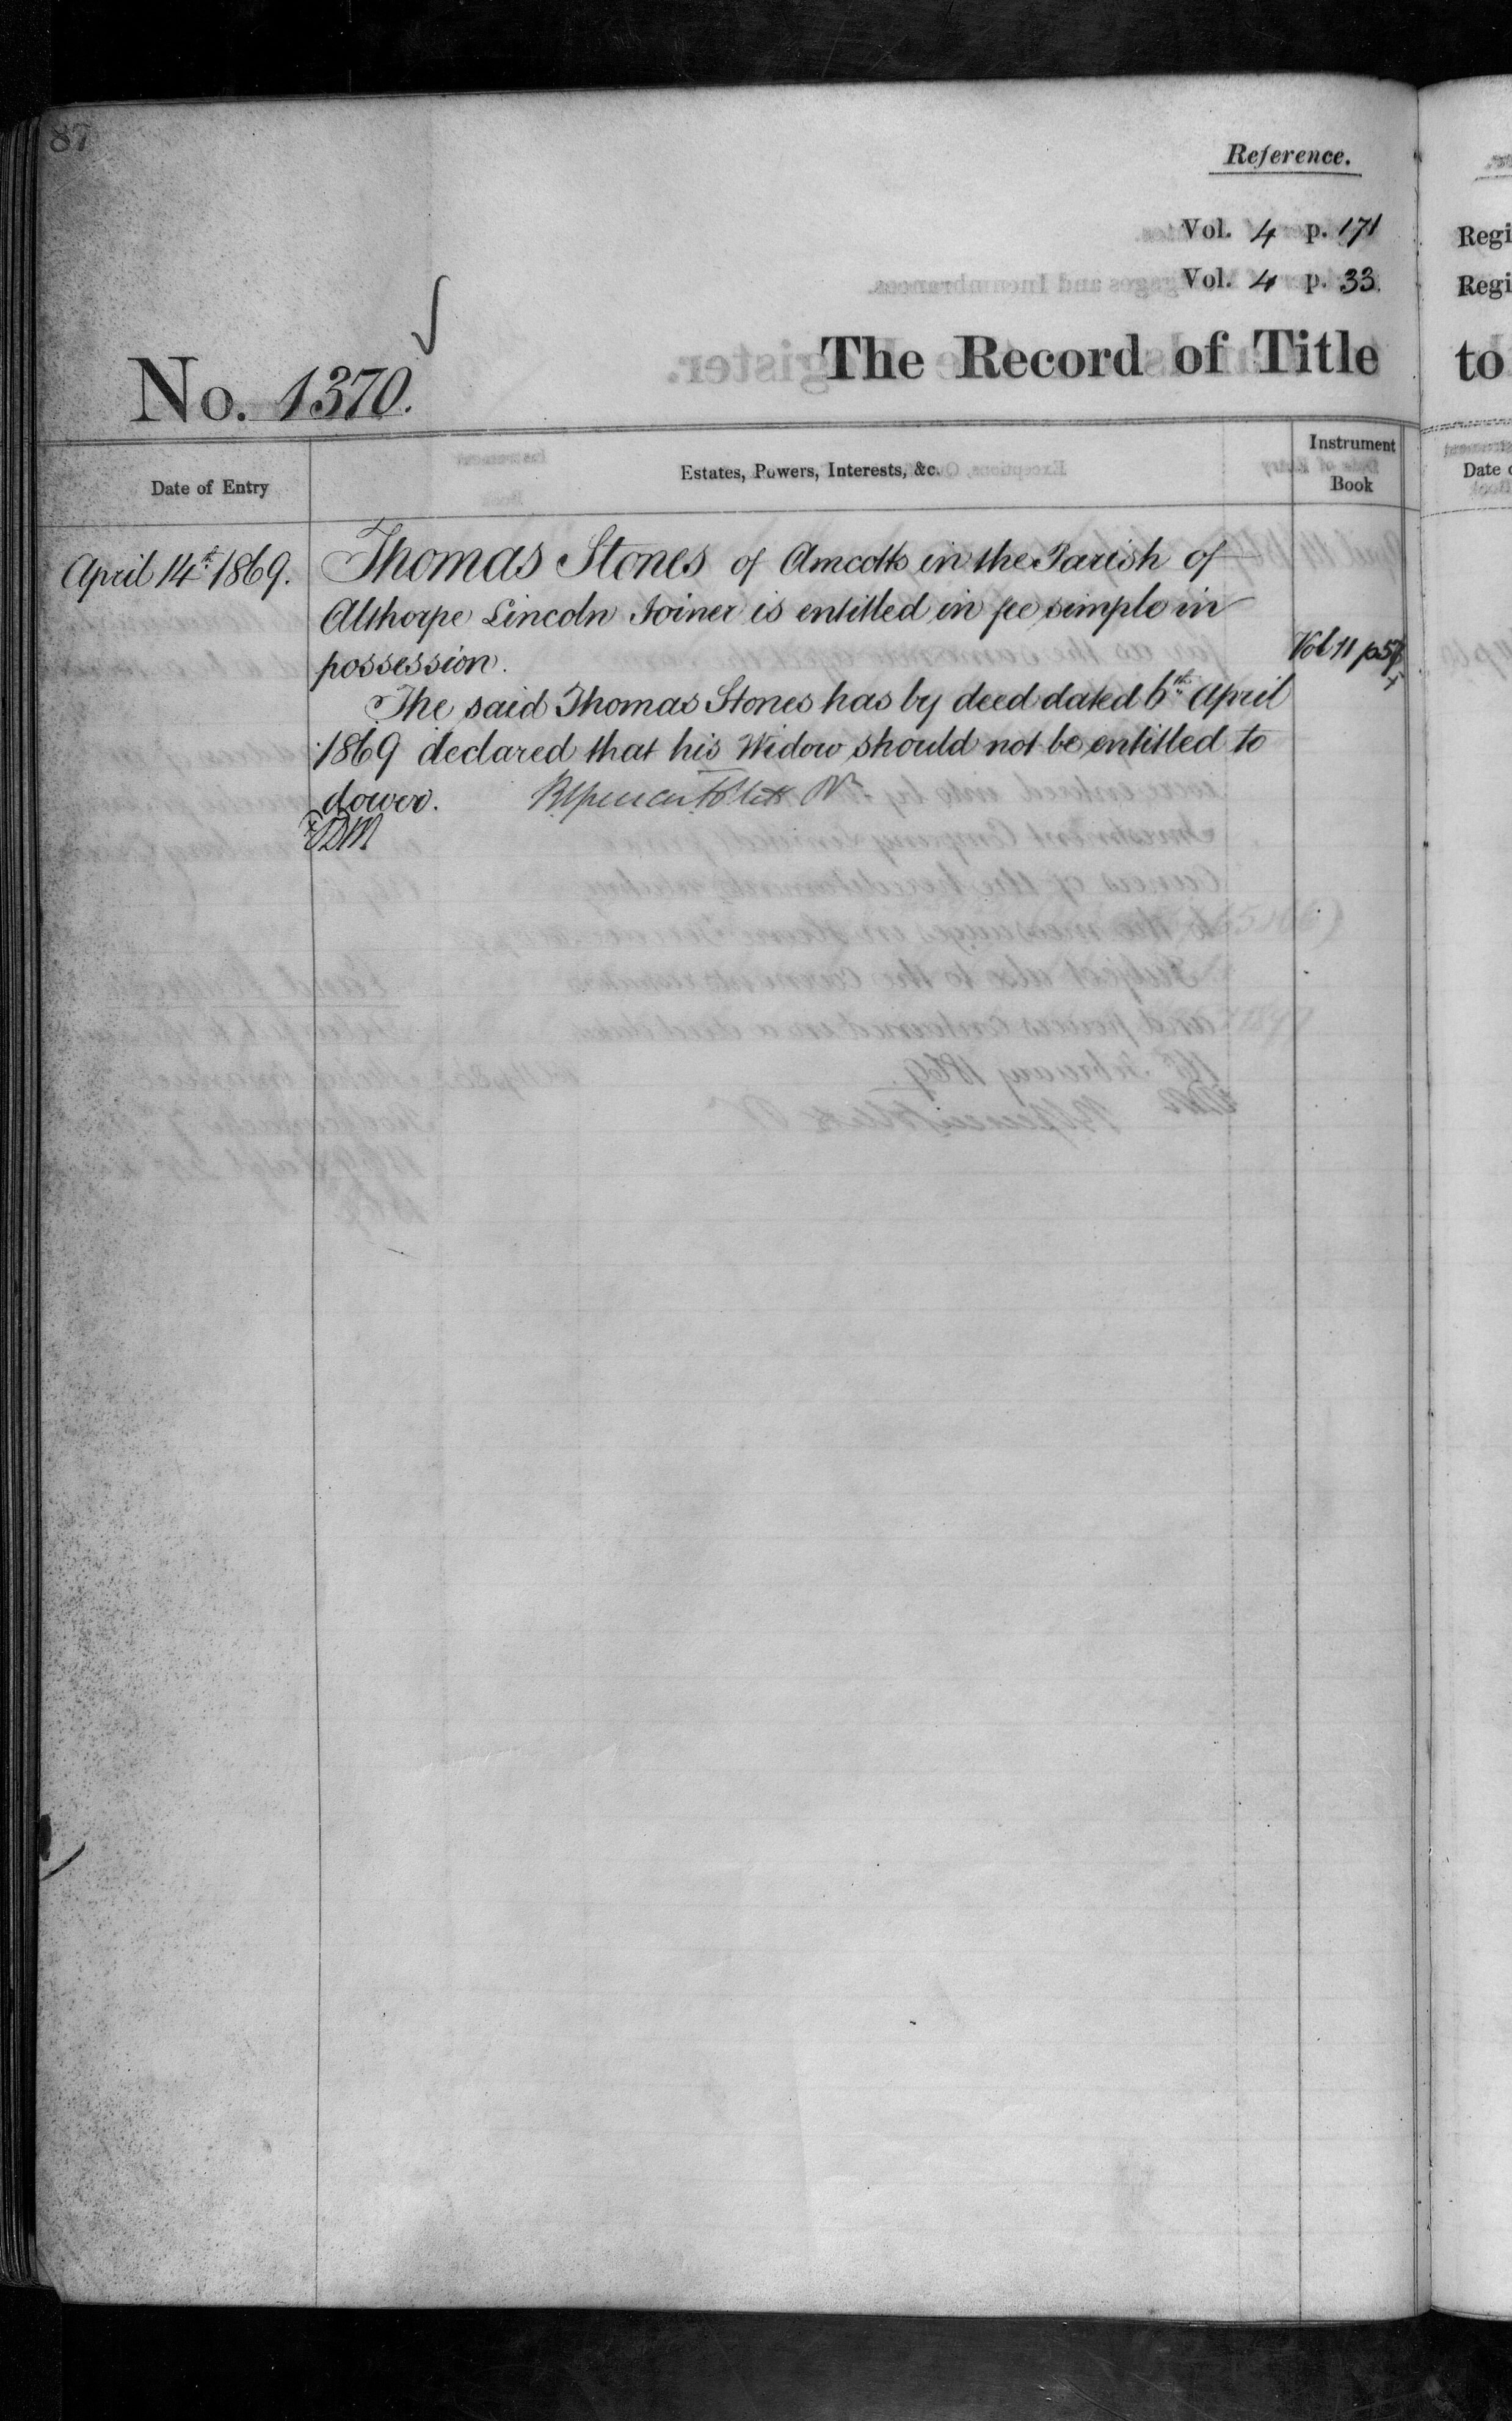 87
Reference.
Vol. 4 p. 171
Vol. 4 p. 33.
No. 1370.
The Record of Title
Date of Entry
Estates, Powers, Interests, &c.
Instrument
Book
April 14th 1869.
Thomas Stones of Amcotts in the Parish of
Althorpe Lincoln Joiner is entitled in fee simple in
possession.
Vol 11 p
The said Thomas Stones has by deed dated 6th April
1869 declared that his Widow should not be entitled to
dower.
Regi
Regi
to
Date